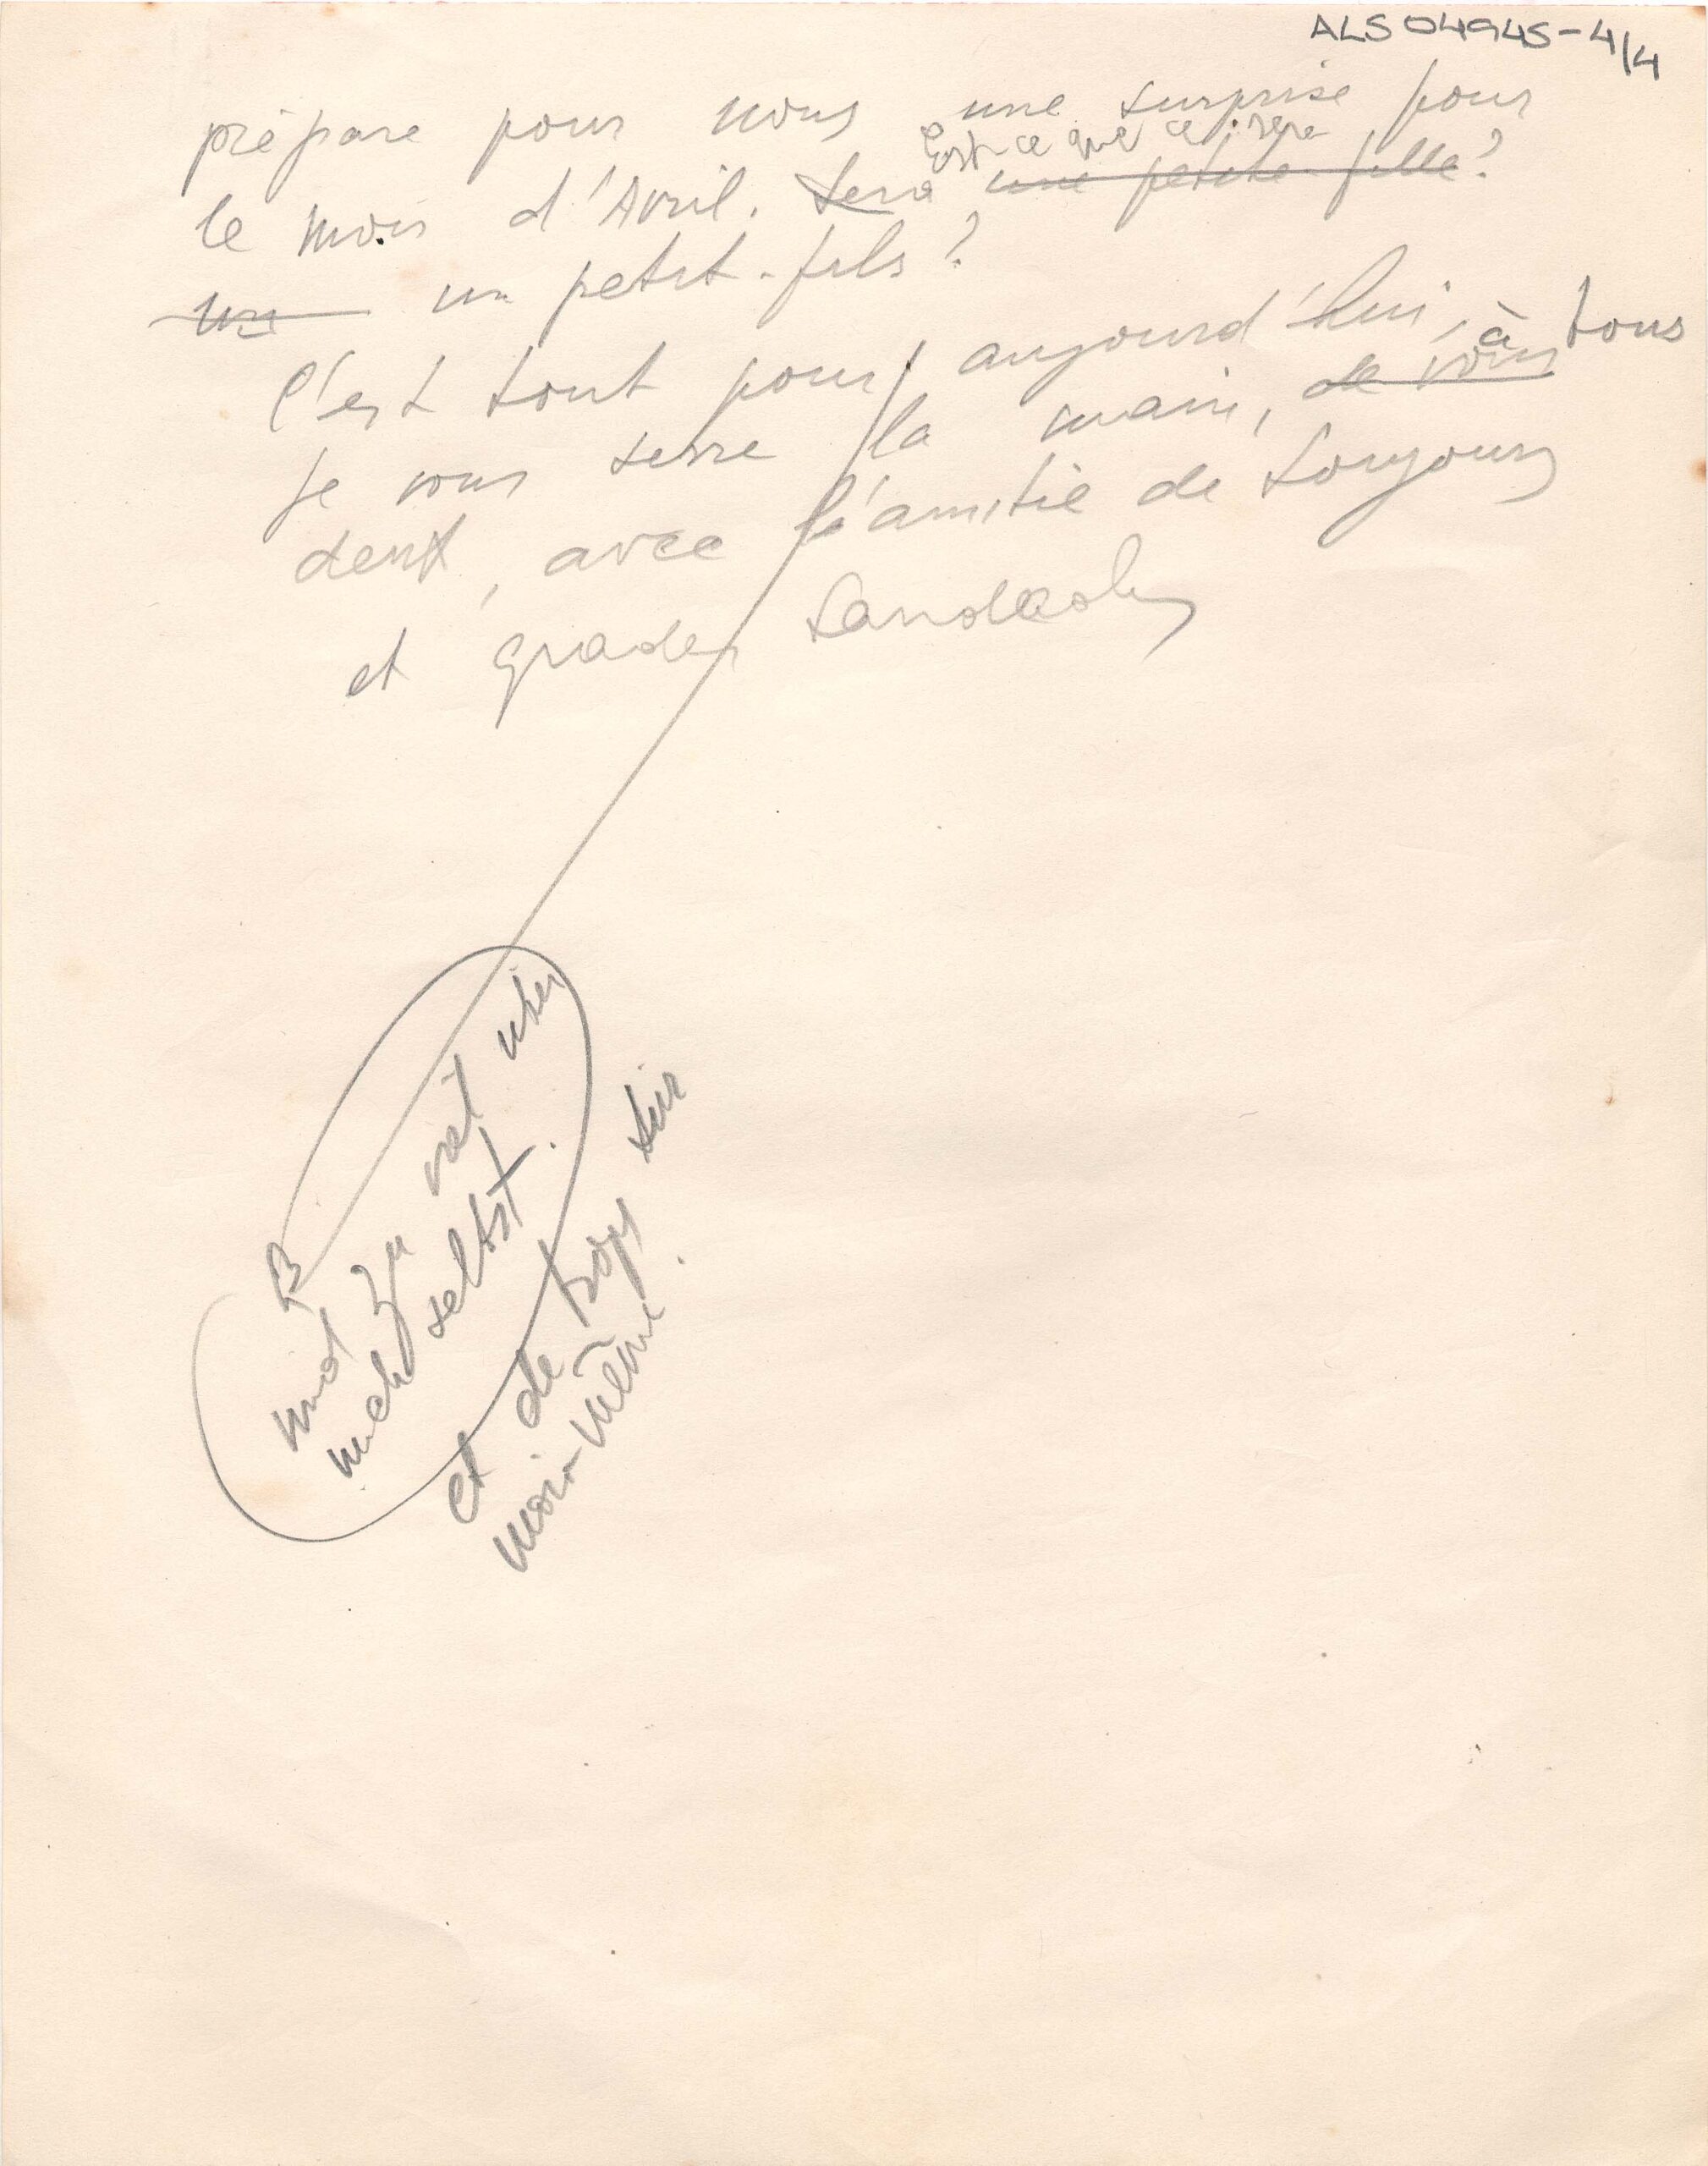 ALS 04945-4/4
prépare pour nous une surprise pour
Est-ce que ce sera
le mois d'Avril. Sera une petite fille?
un un petit-fils?
C'est tout pour aujourd'hui, à tous
je vous serre la main, de vous
deux, avec l'amitié de toujours
et
und zu viel über
mich selbst.
et de trop sur
moi-même.